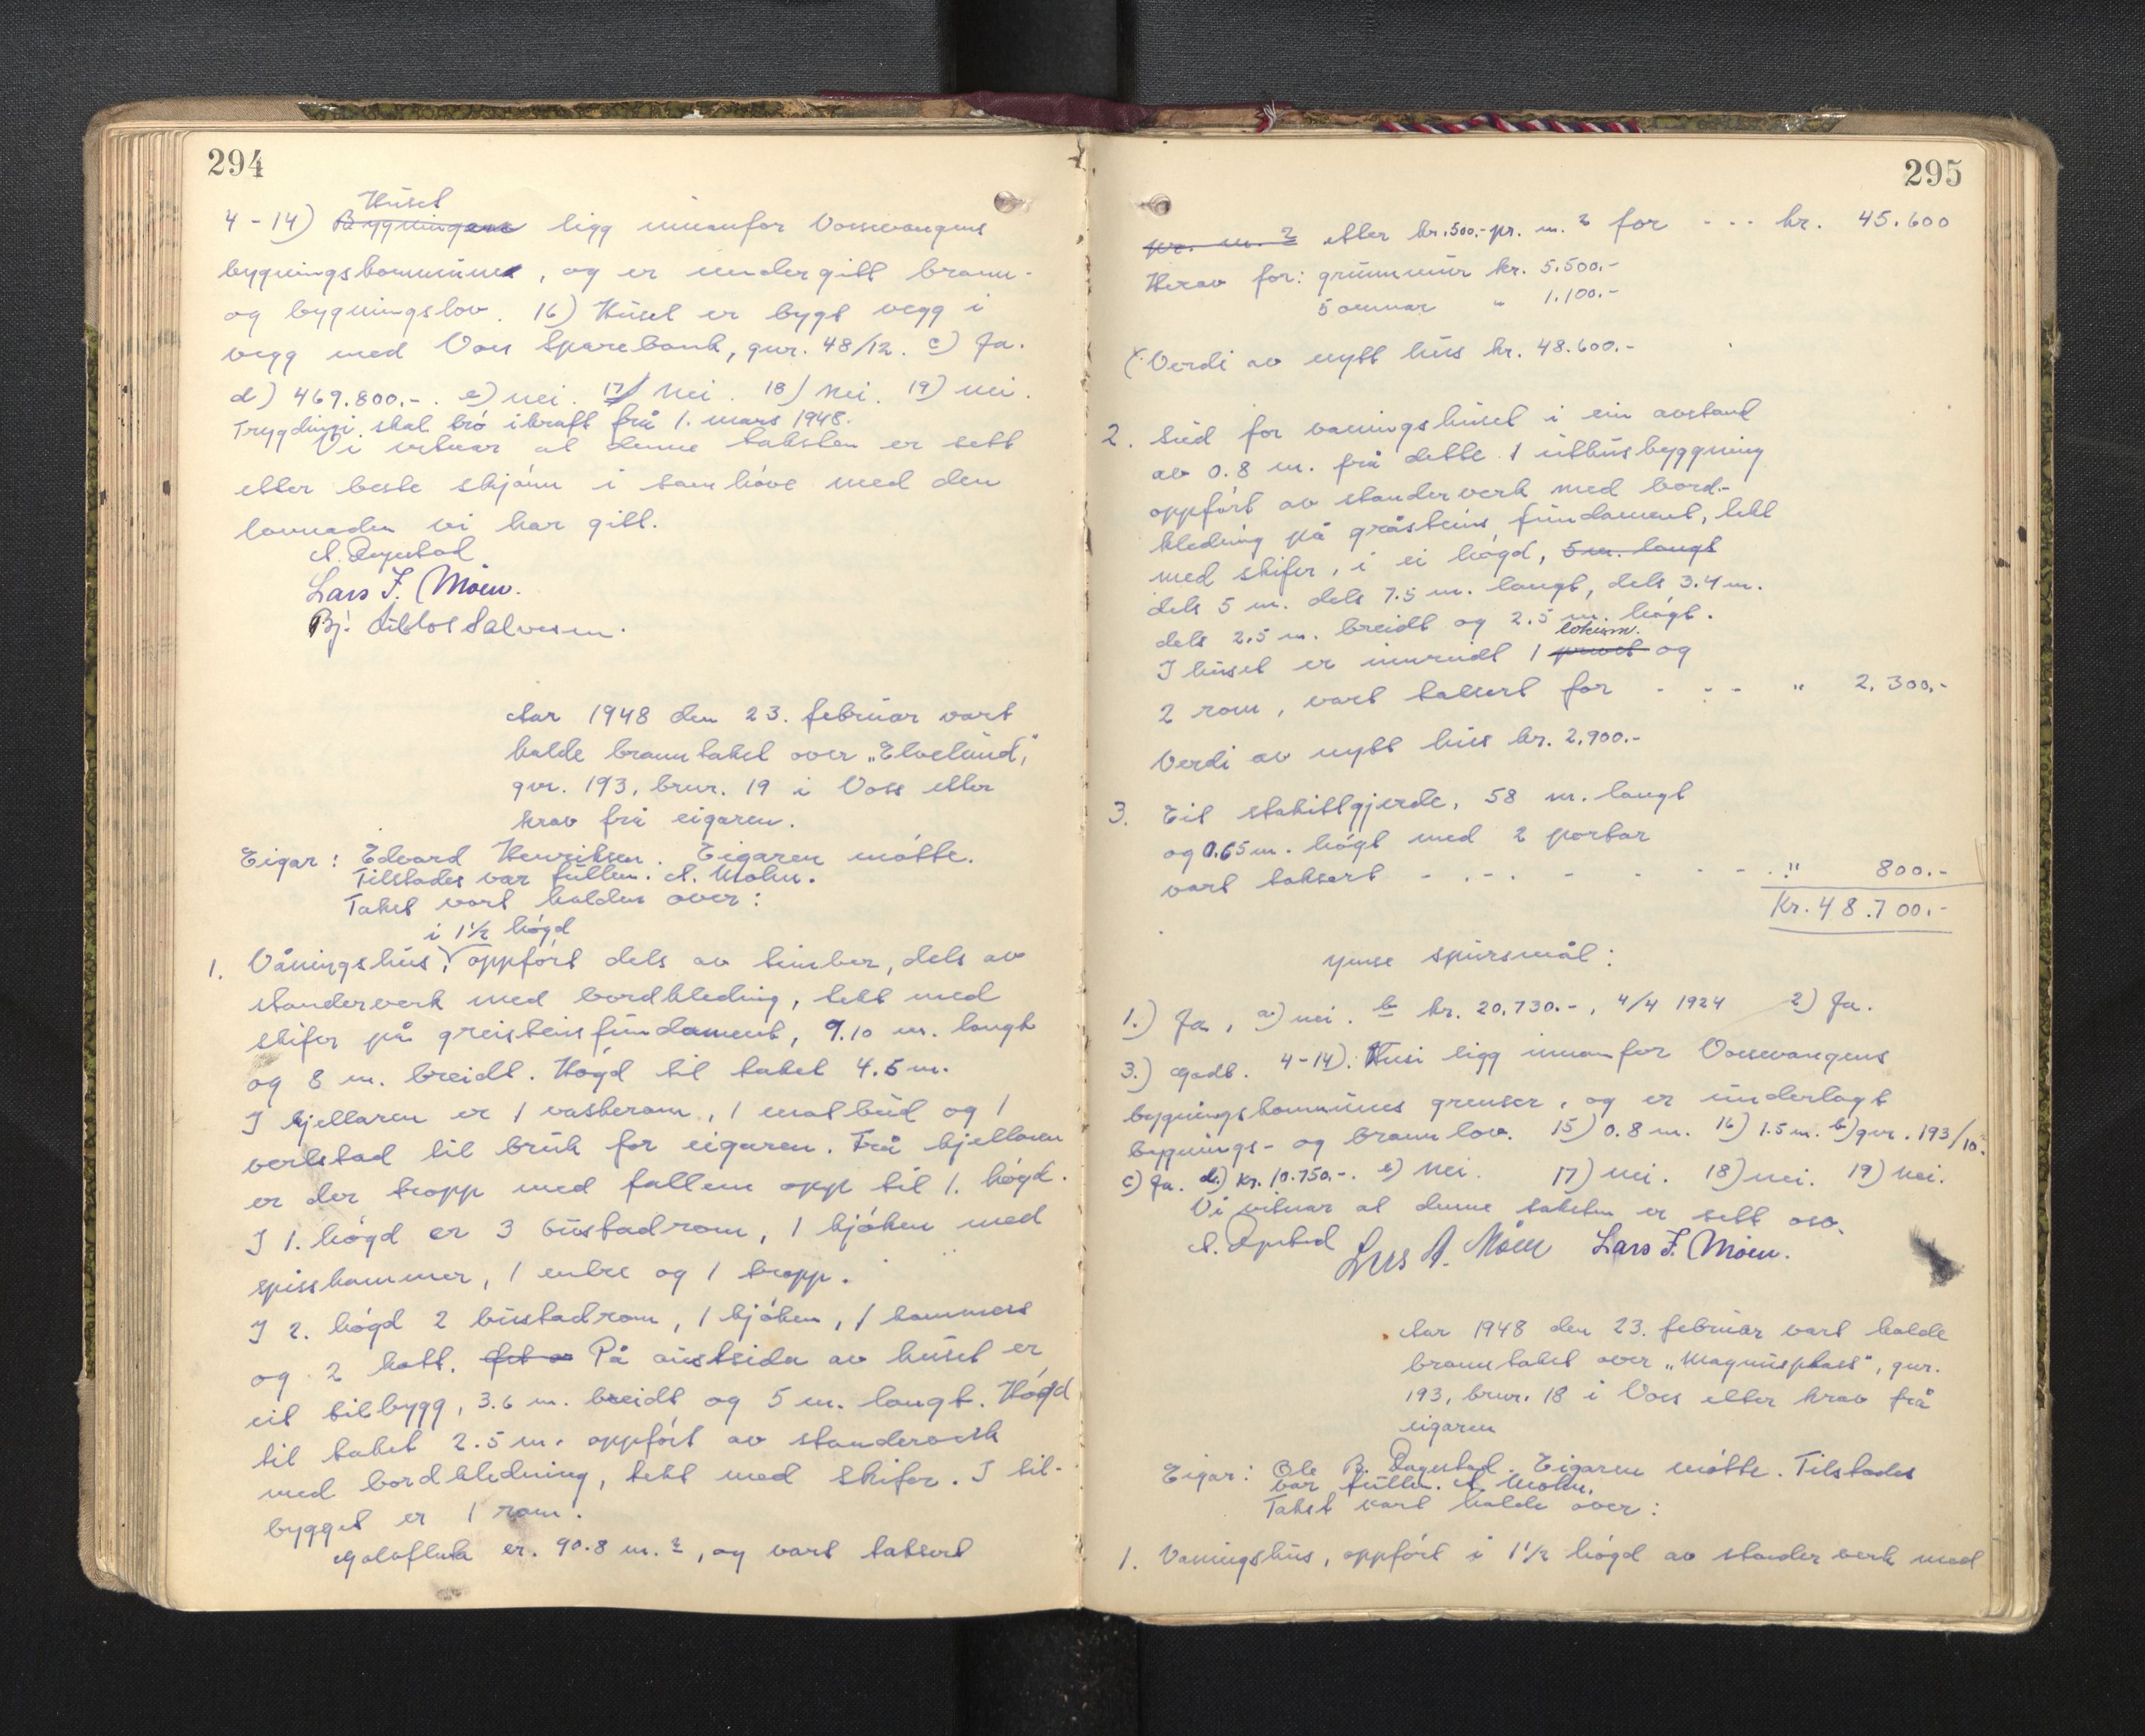 294
Huset
4-14) Bygningane ligg innanfor Vossevangens
bygningskommune, og er undergitt brann-
og bygningslov. 16) Huset er bygt vegg i
vegg med Voss Sparebank, gnr. 48/12. c) Ja.
d) 469.800.-. e) nei. 17) Nei. 18) Nei. 19) nei.
Trygdingi skal tró ikraft frå 1. mars 1948.
Vi vitnar at denne taksten er sett
etter beste skjónn i samhóve med den
lovnaden vi har gitt.
A. Dagestad
Lars J. Móen.
Bj. Salvesen.
Aar 1948 den 23. februar vart
halde branntakst over „Elvelund",
gnr. 193, brnr. 19 i Voss etter
krav frå eigaren.
Eigar: Edvard Henriksen. Eigaren mótte.
Tilstades var fullm. A. Moln.
Takst vart halden over:
i 1½ hógd
1. Våningshus, oppfórt dels av timber, dels av
standerverk med bordkleding, tekt med
skifer på greisteinsfundament, 9.10 m. langt
og 8 m. breidt. Hógd til taket 4.5 m.
I kjellaren er 1 vaskerom, 1 matbud og 1
verkstad til bruk for eigaren. Frå kjellaren
er der tropp med fallem opp til 1. hógd.
I 1. hógd er 3 bustadrom, 1 kjóken med
spisskammer, 1 entre og 1 tropp.
I 2. hógd 2 bustadrom, 1 kjóken, 1 kammers
og 2 kott. På austsida av huset er
eit tilbygg, 3.6 m. breidt og 5 m. langt. Hógd
til taket 2.5 m. oppfórt av standerverk
med bordkledning, tekt med skifer. I til-
bygget er 1 rom.
Golvflata er 90.8 m.², og vart taksert
295
pr. m.² etter kr. 500.- pr. m.² for - - - kr. 45.600
Herav for: grunnmur kr. 5.500.-
5 omnar " 1.100.-
Verdi av nytt hus kr. 48.600.-
2. Sud for vaningshuset i ein avstand
av 0.8 m. frå dette 1 uthusbyggning
oppfórt av standerverk med bord-
kledning på gråsteins fundament, tekt
med skifer, i ei hógd, 5 m. langt
dels 5 m. dels 7.5 m. langt, dels 3.4 m.
dels 2.5 m. breidt og 2.5 m. hógt.
lokum.
I huset er innreidt 1 privet og
2 rom, vart taksert for - - - " 2.300,-
Verdi av nytt hus kr. 2.900.-
3. Eit stakittgjerde, 58 m. langt
og 0.65 m. hógt med 2 portar
vart taksert - - - - - - - " 800.-
Kr. 48.700.-
Ymse spursmål:
1.) Ja, a) nei. b kr. 20.730.-, 4/4 1924 2) Ja.
3.) Godt. 4-14). Husi ligg innanfor Vossevangens
bygningskommunes grenser, og er underlagt
bygnings- og brannlov. 15) 0.8 m. 16) 1.5 m. b) gnr. 193/10.
c) Ja. d.) Kr. 10.750.-. e) Nei. 17) nei. 18) nei. 19) Nei.
Vi vitnar at denne taksten er sett osv.
A. Dagestad Lars A. Móen Lars J. Móen.
Aar 1948 den 23. februar vart halde
branntakst over „Magnusplass", gnr.
193, brnr. 18 i Voss etter krav frå
eigaren
Eigar: Ole B. Dagestad. Eigaren mótte. Tilstades
var fullm. A. Moln.
Takst vart halde over:
1. Vaningshus, oppfórt i 1½ hógd av standerverk med